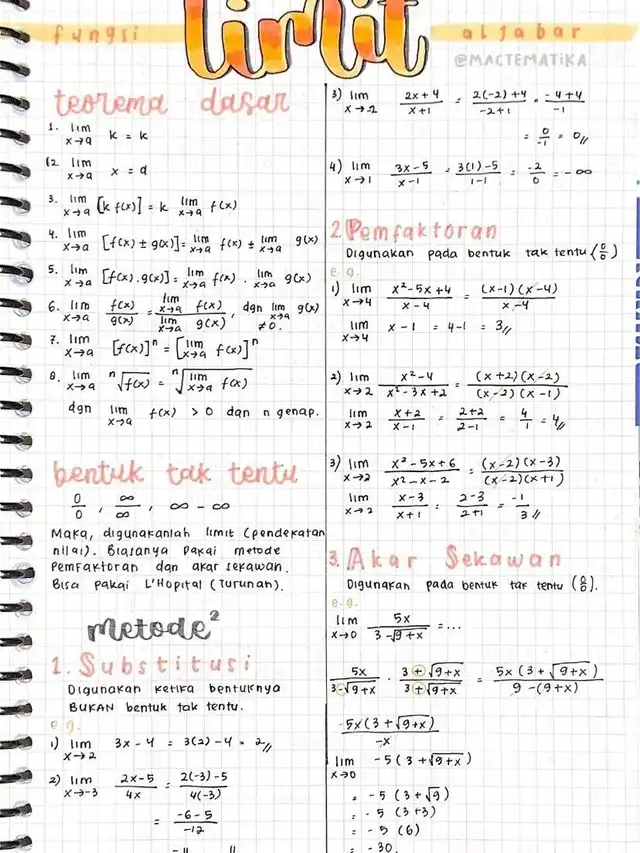 limit
fungsi
aljabar
@MACTEMATIKA
teorema dasar
1. lim x→a k = k
2. lim x→a x = a
3. lim x→a [k f(x)] = k lim x→a f(x)
4. lim x→a [f(x) ± g(x)] = lim x→a f(x) ± lim x→a g(x)
5. lim x→a [f(x) . g(x)] = lim x→a f(x) . lim x→a g(x)
6. lim x→a f(x)/g(x) = lim x→a f(x) / lim x→a g(x), dgn lim x→a g(x) ≠ 0.
7. lim x→a [f(x)]ⁿ = [lim x→a f(x)]ⁿ
8. lim x→a ⁿ√f(x) = ⁿ√lim x→a f(x)
dgn lim x→a f(x) > 0 dan n genap.
bentuk tak tentu
0/0 , ∞/∞ , ∞ - ∞
Maka, digunakanlah limit (pendekatan
nilai). Biasanya pakai metode
Pemfaktoran dan akar sekawan.
Bisa pakai L'Hopital (Turunan).
metode²
1. Substitusi
Digunakan ketika bentuknya
BUKAN bentuk tak tentu.
e.g.
1) lim x→2 3x - 4 = 3(2) - 4 = 2//
2) lim x→-3 2x-5/4x = 2(-3)-5/4(-3)
= -6-5/-12
3) lim x→-2 2x+4/x+1 = 2(-2)+4/-2+1 = -4+4/-1
= 0/-1 = 0//
4) lim x→1 3x-5/x-1 = 3(1)-5/1-1 = -2/0 = -∞
2. Pemfaktoran
Digunakan pada bentuk tak tentu (0/0)
e.g.
1) lim x→4 x²-5x+4/x-4 = (x-1)(x-4)/x-4
lim x→4 x-1 = 4-1 = 3//
2) lim x→2 x²-4/x²-3x+2 = (x+2)(x-2)/(x-2)(x-1)
lim x→2 x+2/x-1 = 2+2/2-1 = 4/1 = 4//
3) lim x→2 x²-5x+6/x²-x-2 = (x-2)(x-3)/(x-2)(x+1)
lim x→2 x-3/x+1 = 2-3/2+1 = -1/3//
3. Akar Sekawan
Digunakan pada bentuk tak tentu (0/0).
e.g.
lim x→0 5x/3-√9+x = ...
5x/3-√9+x . 3+√9+x/3+√9+x = 5x(3+√9+x)/9-(9+x)
-5x(3+√9+x)/-x
lim x→0 -5(3+√9+x)
= -5(3+√9)
= -5(3+3)
= -5(6)
= -30.